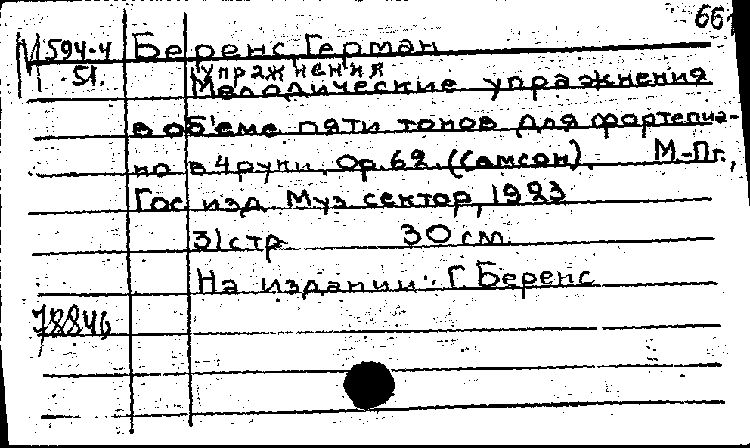 66
М 594-4 Беренс, Герман
1 51. упражнения
Мелодические упражнения
в об'еме пяти тонов для фортепиа-
но в 4 руки. Op. 62. (Самсон). М-Пг.,
Гос. изд. Муз. сектор, 1923
31 стр. 30 см.
На издании: Г. Беренс
78846